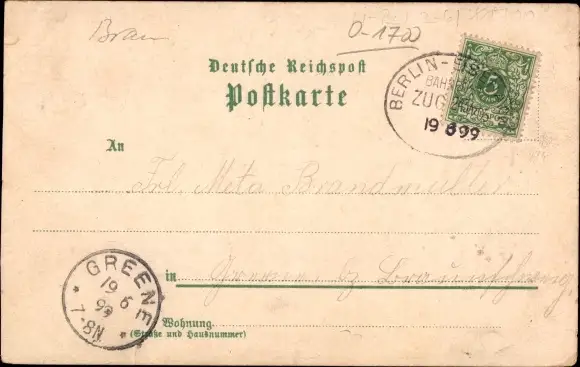 Braun
0-1700
Deutsche Reichspost
Postkarte
BERLIN-EIS
BAHN
ZUG
19 6 99
5
An
Frl. Meta Brandmüller
GREENE
19 6
99
7-8N
in Greene b/ Braunschweig
Wohnung
(Straße und Hausnummer)